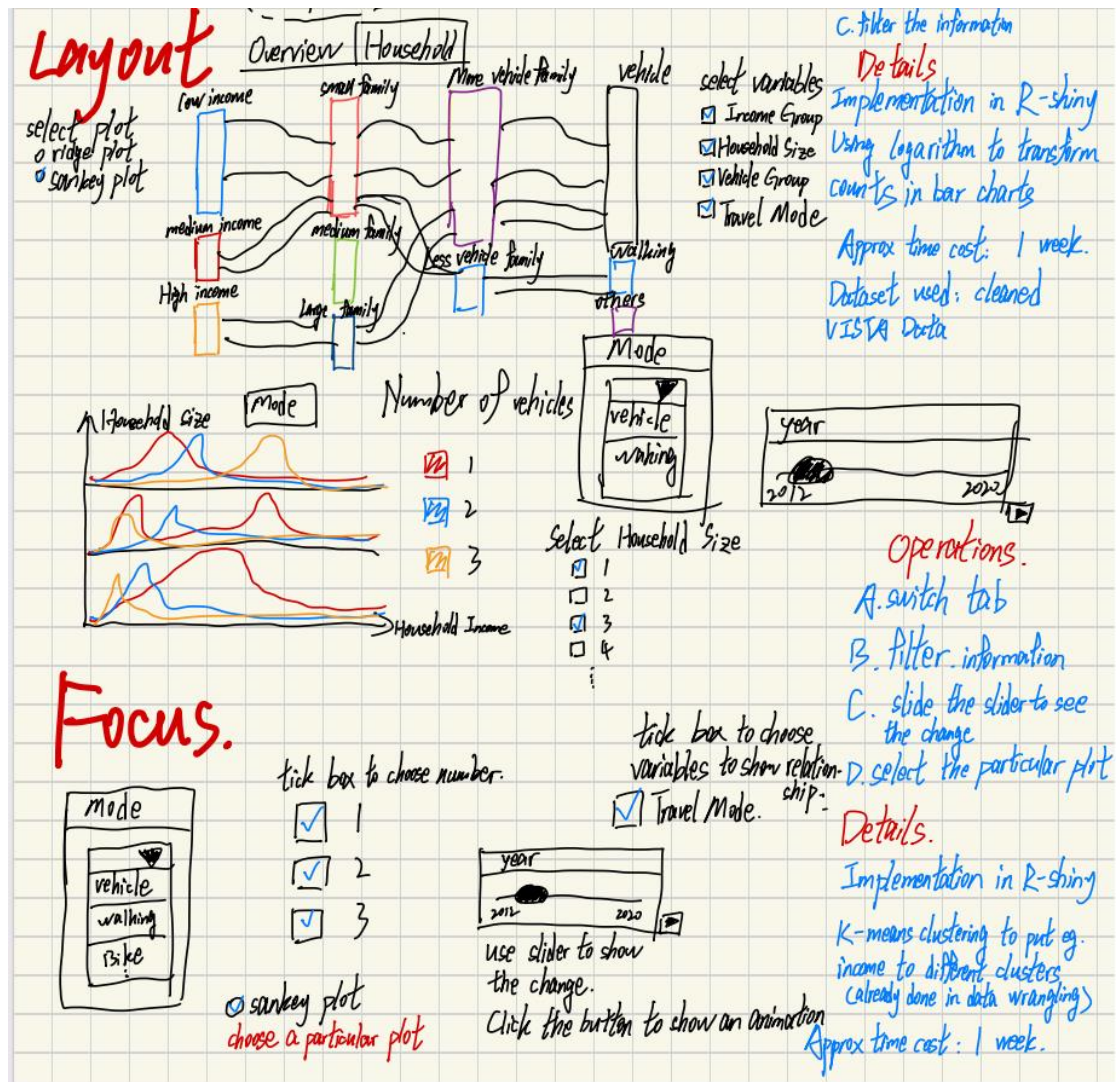 Layout
Overview
Household
select plot
ridge plot
sankey plot
low income
small family
More vehicle family
vehicle
medium income
medium family
less vehicle family
walking
High income
Large family
others
select variables
Income Group
Household Size
Vehicle Group
Travel Mode
Household Size
Mode
Number of vehicles
1
2
3
Household Income
Mode
vehicle
walking
Select Household Size
1
2
3
4
year
2012
2020
C. filter the information
Details
Implementation in R-shiny
Using logarithm to transform
counts in bar charts
Approx time cost: 1 week.
Dataset used: cleaned
VISTA Data
Operations.
A. switch tab
B. filter information
C. slide the slider to see
the change
D. select the particular plot
Details.
Implementation in R-shiny
K-means clustering to put eg.
income to different clusters
(already done in data wrangling)
Approx time cost: 1 week.
Focus.
Mode
vehicle
walking
Bike
tick box to choose number.
1
2
3
sankey plot
choose a particular plot
tick box to choose
variables to show relation-
ship:
Travel Mode.
year
2012
2020
use slider to show
the change.
Click the button to show an animation